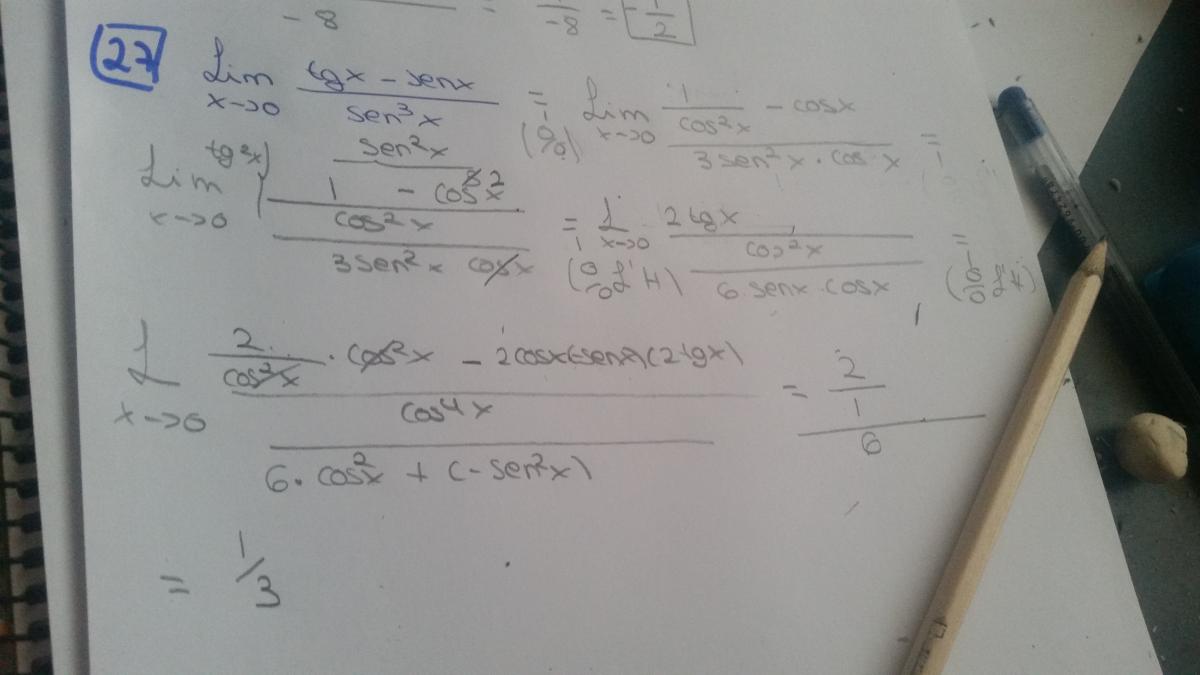 -8 = 1/-8 = -1/2
27 Lim x→0 (tgx - senx)/(sen³x) = (0/0) Lim x→0 (1/cos²x - cosx)/(3sen²x · cosx) =
Lim x→0 tg²x sen²x (1 - cos²x)/(cos²x)/(3sen²x cosx) = (0/0 L'H) L x→0 (2tgx/cos²x)/(6 · senx · cosx) = (0/0 L'H)
L x→0 (2/cos²x · cos²x - 2cosx(-senx)(2tgx))/(cos⁴x)/(6 · cos²x + (-sen²x)) = (2/1)/6
= 1/3